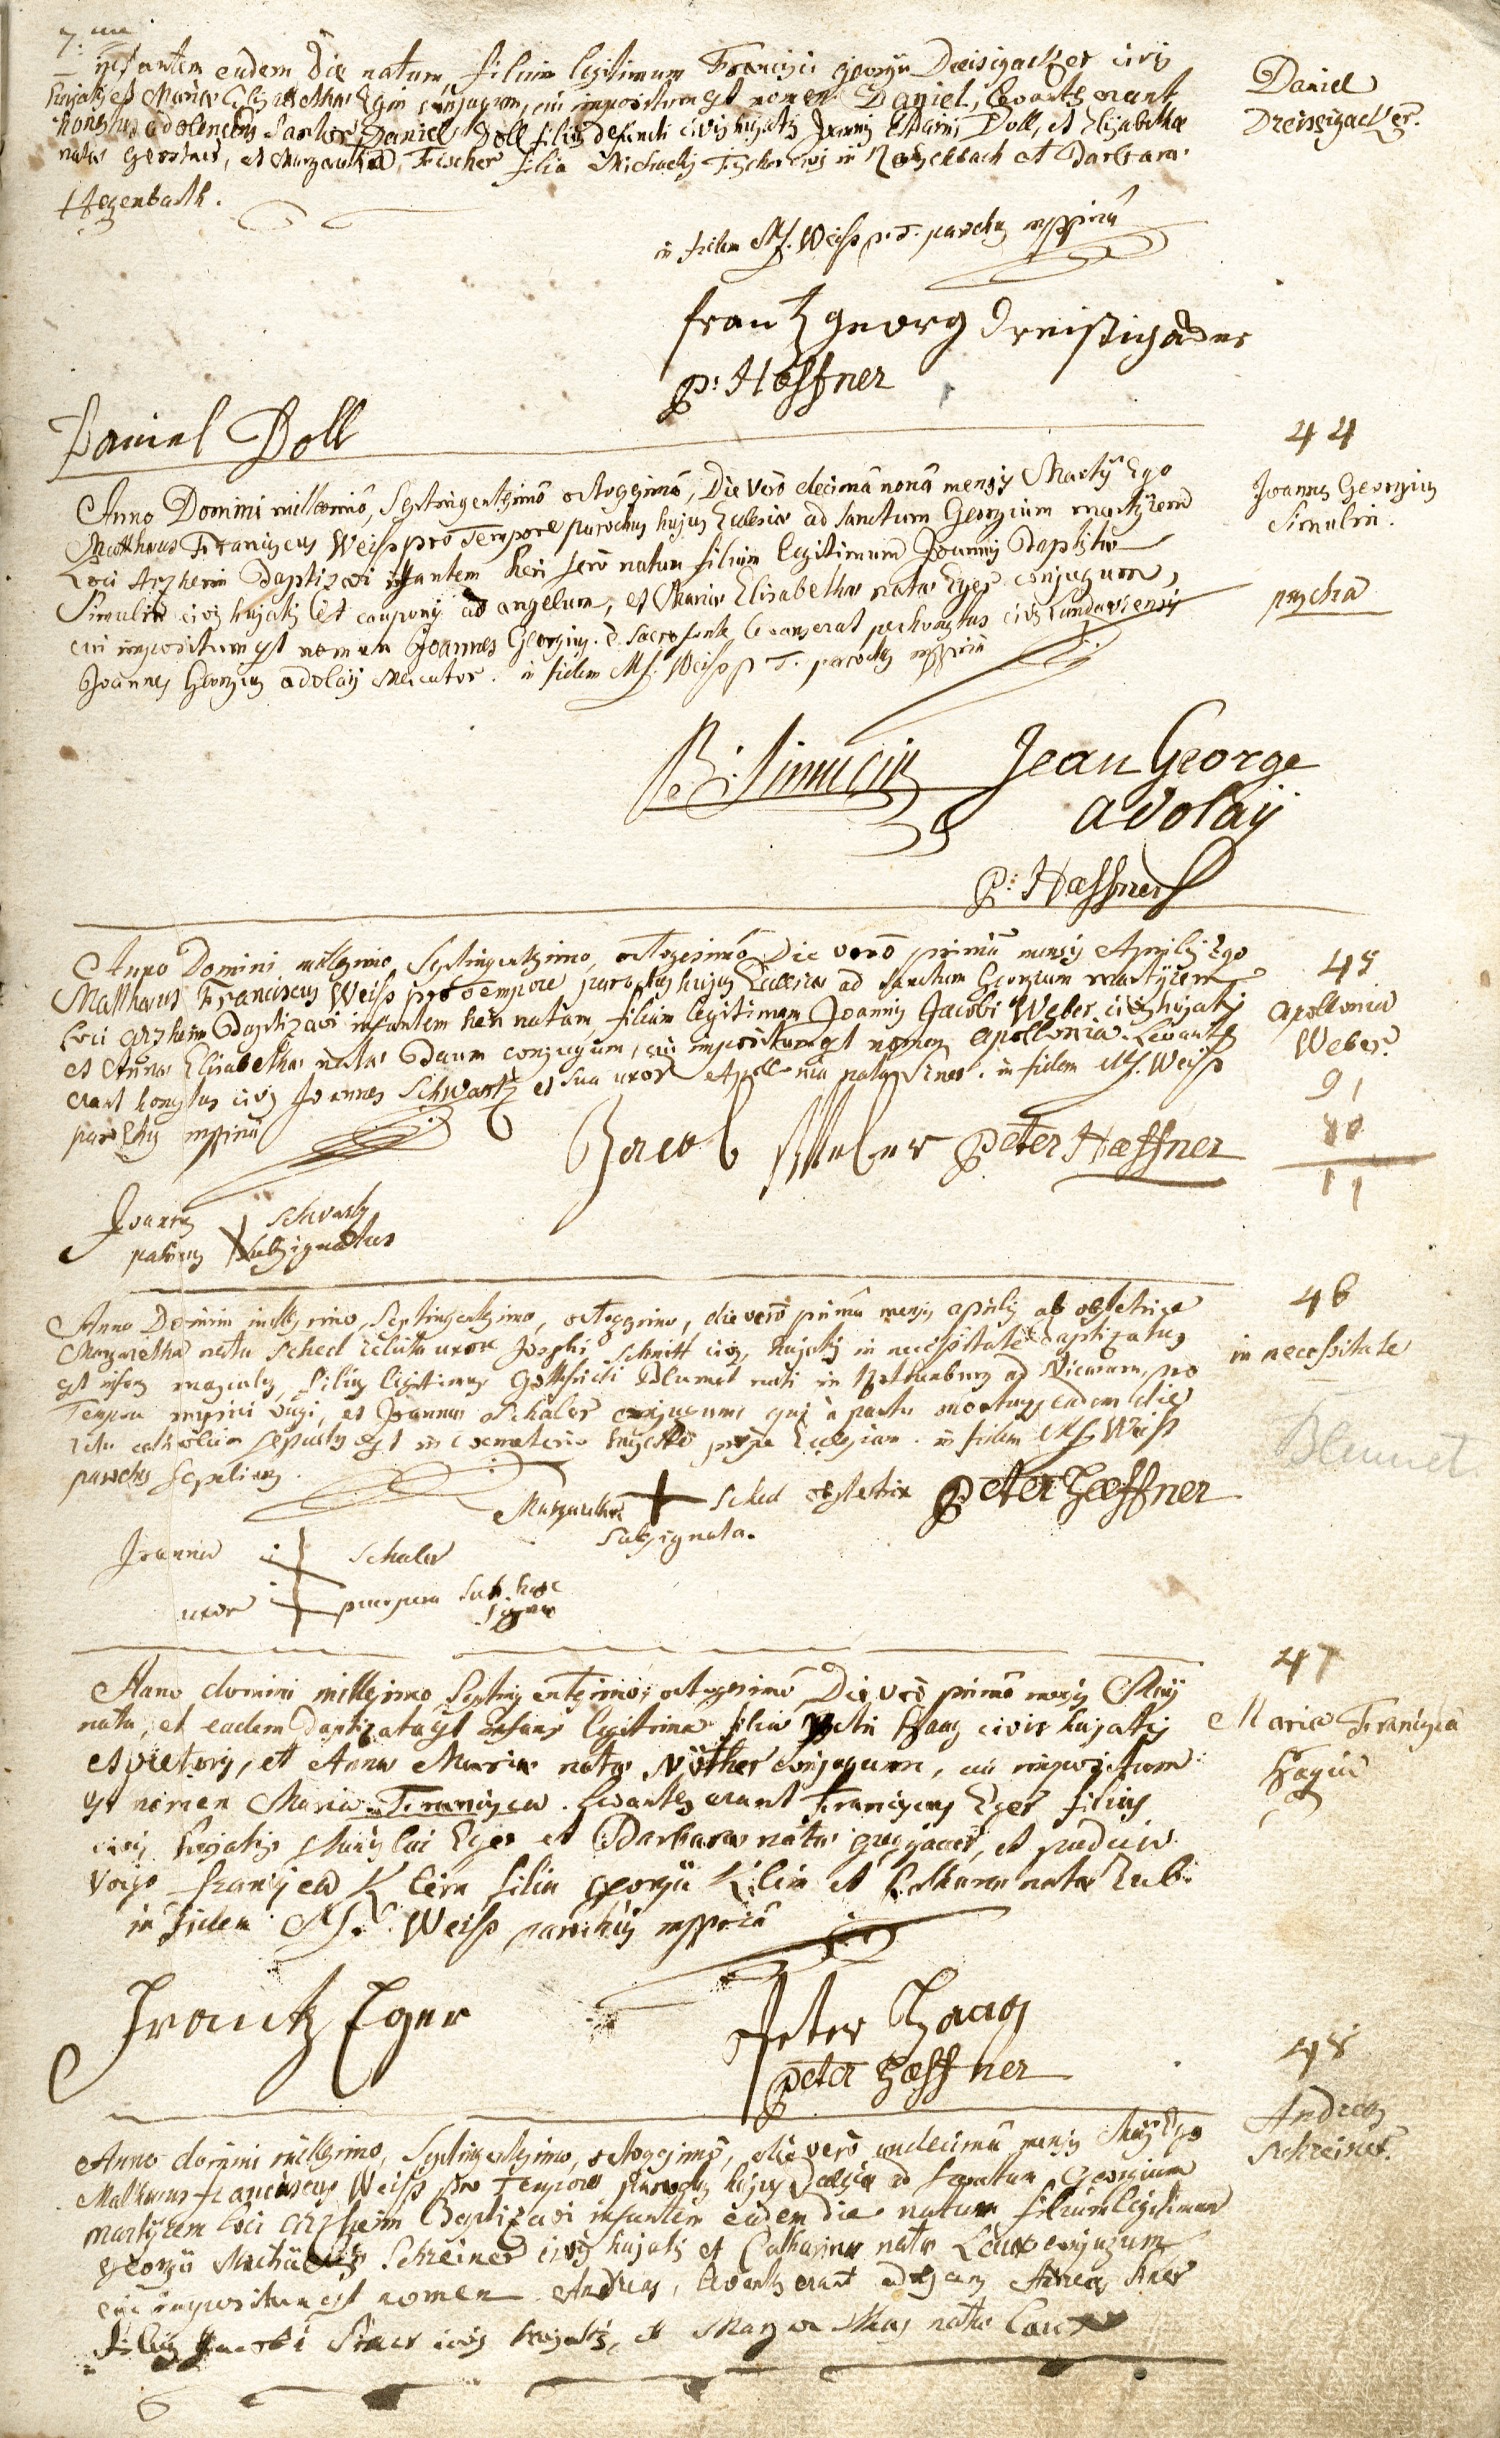 7.ma
infantem eadem Die natum, filium legitimum Francisci georgii Dreisigacker civis
hujatis et Mariæ Elisabethæ Egin conjugum, cui impositum est nomen Daniel, levantes erant
honestus adolescens Daniel Doll filius defuncti civis hujatis Joannis Doll, et Elisabethæ
natæ et Margaretha Fischer filia Michaelis Fischer civis in et Barbara
Hegenbarth.
Daniel
Dreissigacker.
in fidem M.f. Weiss p.T. parochus mppriâ
frantz georg Dreissigacker
P: Hæffner
Daniel Doll
44
Anno Domini millesimô, Septingentesimô octogesimô, Die Verò decimâ nonâ mensis Martÿ Ego
Matthæus Franciscus Weiss pro Tempore parochus hujus Ecclesiæ ad sanctum Georgium martÿrem
Loci Arzheim Baptizavi infantem heri serò natum filium legitimum Joannis Baptistæ
Simulin civis hujatis et cauponis ad angelum, et Mariæ Elisabethæ natæ Eger conjugum,
cui impositum est nomen Joannes Georgius. è sacro fonte levanserat perhonestus civis Landaviensis
Joannes Georgius adolaÿ Mercator. in fidem M.f. Weiss p T. parochus mppriâ
Joannes Georgius
Simulin.
pascha
B. Simulin Jean George
adolaÿ
P: Hæffner
Anno Domini millesimo, Septingentesimo, octogesimô Die verò primâ mensis Aprilis Ego
Matthæus Franciscus Weiss pro Tempore parochus hujus Ecclesiæ ad sanctum Georgium martÿrem
Loci Arzheim Baptizavi infantem heri natam, filiam legitimam Joannis Jacobi Weber civis hujatis
et Annæ Elisabethæ natæ Daum conjugum, cui impositum est nomen apollonia. Levantes
erant honestus civis Joannes Schwartz et sua uxor Apollonia nata Siner. in fidem M.f. Weiss
parochus mppriâ
45
apollonia
Weber.
91
80
11
Jacob Weber Peter Hæffner
Joannes Schwartz
patrinus subsignatus
46
Anno Domini millesimo, Septingentesimo, octogesimo, die verò primâ mensis aprilis ab obstetrice
Margaretha nata Sched relicta uxore Josephi Schmitt civis hujatis in necessitate baptizatus
est infans masculus, filius legitimus Gottfridi Blumet nati in Rothenburg ad Nicarum, pro
Tempore vagi, et Joannæ Schaler conjugum, qui à partu mortuus eadem die
ritu catholico sepultus est in cæmeterio prope Ecclesiam. in fidem M.f. Weiss
parochus sepeliens.
in necessitate
Blumet
Margaretha + Sched obstetrix Peter Hæffner
subsignata.
Joanna Schaler
uxor puerpera sub hoc
signo
47
Anno domini millesimo Septingentesimo, octogesimô Die Verò primâ mensis Maÿ
nata, et eadem Baptizata est infans legitima filia Petri Haag civis hujatis
et vietoris, et Annæ Mariæ natæ Nöther conjugum, cui impositum
est nomen Maria Francisca. Levantes erant Franciscus Eger filius
civis hujatis Eger et Barbaræ natæ et pudica
Virgo francisca Klein filia georgii Klein et natæ
in fidem M.f. Weiss parochus mppriâ
Maria Francisca
Haagin
Frantz Eger
Peter Haag
Peter Hæffner
48
Anno domini millesimo, Septingentesimo, octogesimô, die verò undecimâ mensis Maÿ Ego
Matthæus franciscus Weiss pro Tempore parochus hujus Ecclesiæ ad sanctum Georgium
martÿrem loci Arzheim Baptizavi infantem eadem die natum filium legitimum
georgii Michaëlis Schreiner civis hujatis et Catharinæ natæ Laux conjugum
cui impositum est nomen Andreas, levantes erant Andreas Siner
filius Jacobi Siner civis hujatis, et natæ Laux
Andreas
Schreiner.